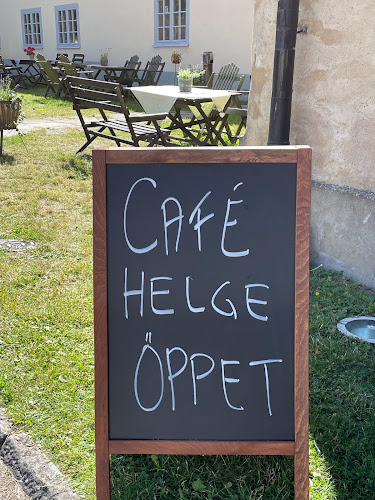 CAFÉ
HELGE
ÖPPET